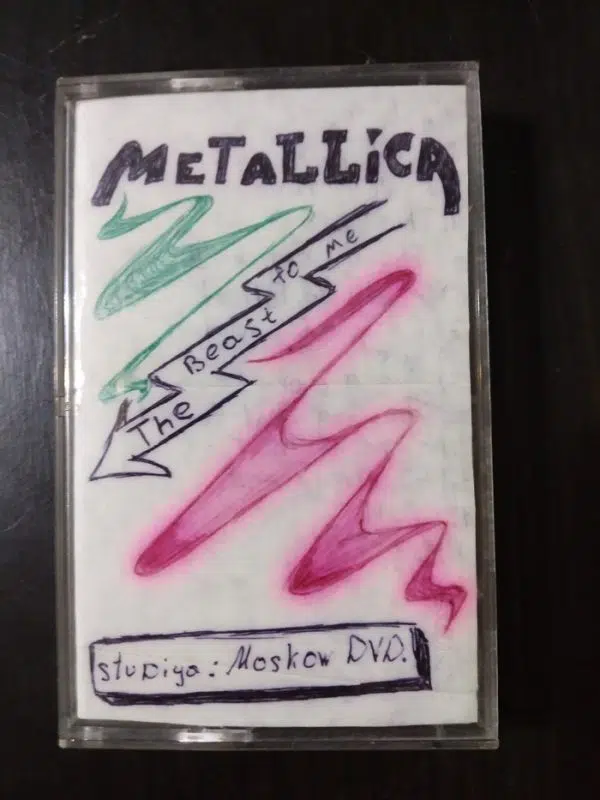 METALLiCA
The Beast to me
stuDiya: Moskow DVD.